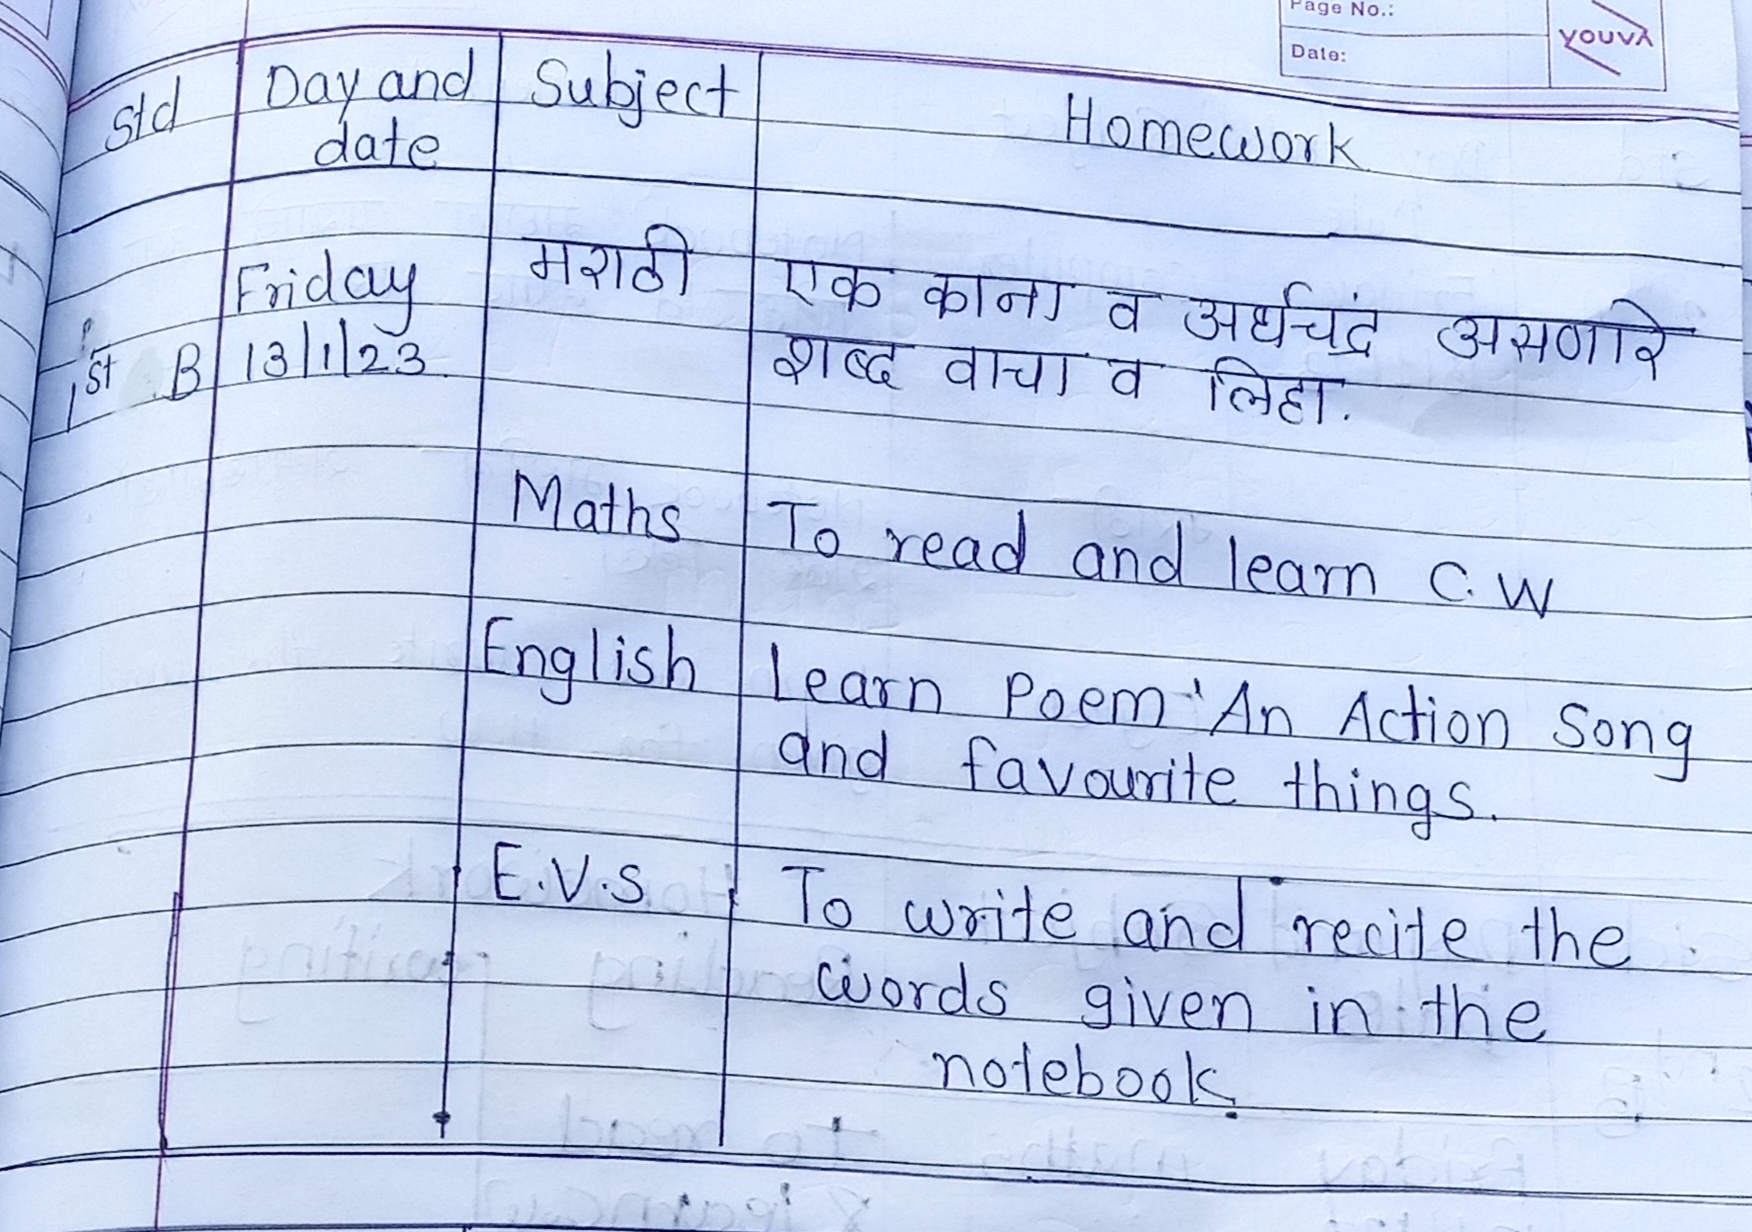 Page No.:
Date:
YOUVA
Std Day and date Subject Homework
1st B Friday 13/1/23 मराठी एक काना व अर्धचंद्र असणारे
शब्द वाचा व लिहा.
Maths To read and learn C.W
English Learn Poem 'An Action Song
and favourite things.
E.V.S To write and recite the
words given in the
notebook.